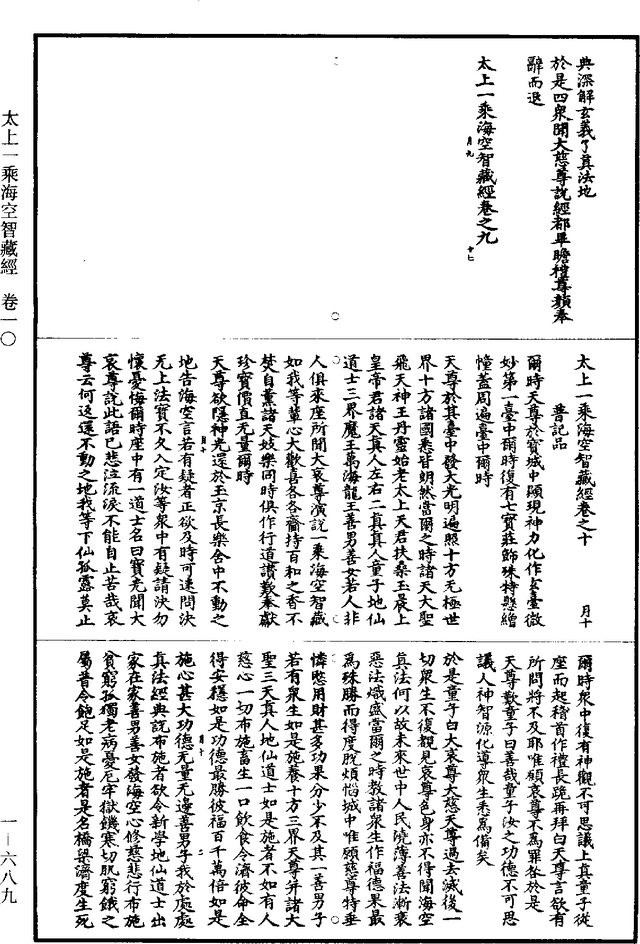 太上一乘海空智藏經 卷一〇
一一六八九
典深解玄義了真法地
於是四眾聞大慈尊說經都畢瞻禮尊顏奉
辭而退
太上一乘海空智藏經卷之九
月九
十七
太上一乘海空智藏經卷之十
月十
普記品
爾時天尊於寶城中顯現神力化作玄臺微
妙第一臺中爾時復有七寶莊飾殊特懸繒
幢蓋周遍臺中爾時
天尊於其臺中發大光明遍照十方无極世
界十方諸國悉皆朗然當爾之時諸天大聖
飛天神王丹靈始老太上天君扶桑玉晨上
皇帝君諸天真人左右二真真人童子地仙
道士三界魔王萬海龍王善男善女若人非
人俱來座所聞大哀尊演說一乘海空智藏
如我等輩心大歡喜各各齎持百和之香不
焚自薰諸天妓樂同時俱作行道讚歎奉獻
珍寶價直无量爾時
天尊欲隱神光還於玉京長樂舍中不動之
月十
地告海空言若有疑者正欲及時可速問決
无上法寶不久入定汝等眾中有疑請決勿
懷憂悔爾時座中有一道士名曰寶光聞大
哀尊說此語已悲泣流淚不能自止苦哉哀
尊云何返還不動之地我等下仙孤露莫止
爾時眾中復有神觀不可思議上真童子從
座而起稽首作禮長跪再拜白天尊言欲有
所問將不及耶唯願哀尊不為罪咎於是
天尊歎童子曰善哉童子汝之功德不可思
議人神智源化導眾生悉為備矣
於是童子白大哀尊大慈天尊過去滅後一
切眾生不復覩見哀尊色身亦不得聞海空
真法何以故未來世中人民澆薄善法漸衰
惡法熾盛當爾之時教諸眾生作福德果最
為殊勝而得度脫煩惱城中唯願慈尊特垂
憐愍用財甚多功果分少不及其一善男子
若有眾生如是施養十方三界天尊并諸大
聖三天真人地仙道士如是施者不如有人
慈心一切布施畜生一口飲食令濟彼命全
得安穩如是功德最勝彼福百千萬倍如是
月十
二
施心甚大功德无量无邊善男子我於處處
真法經典說布施者欲令新學地仙道士出
家在家善男善女發海空心修慈悲行布施
貧窮孤獨老病憂厄牢獄饑寒切肌窮餓之
屬普令飽足如是施者是名橋梁濟度生死